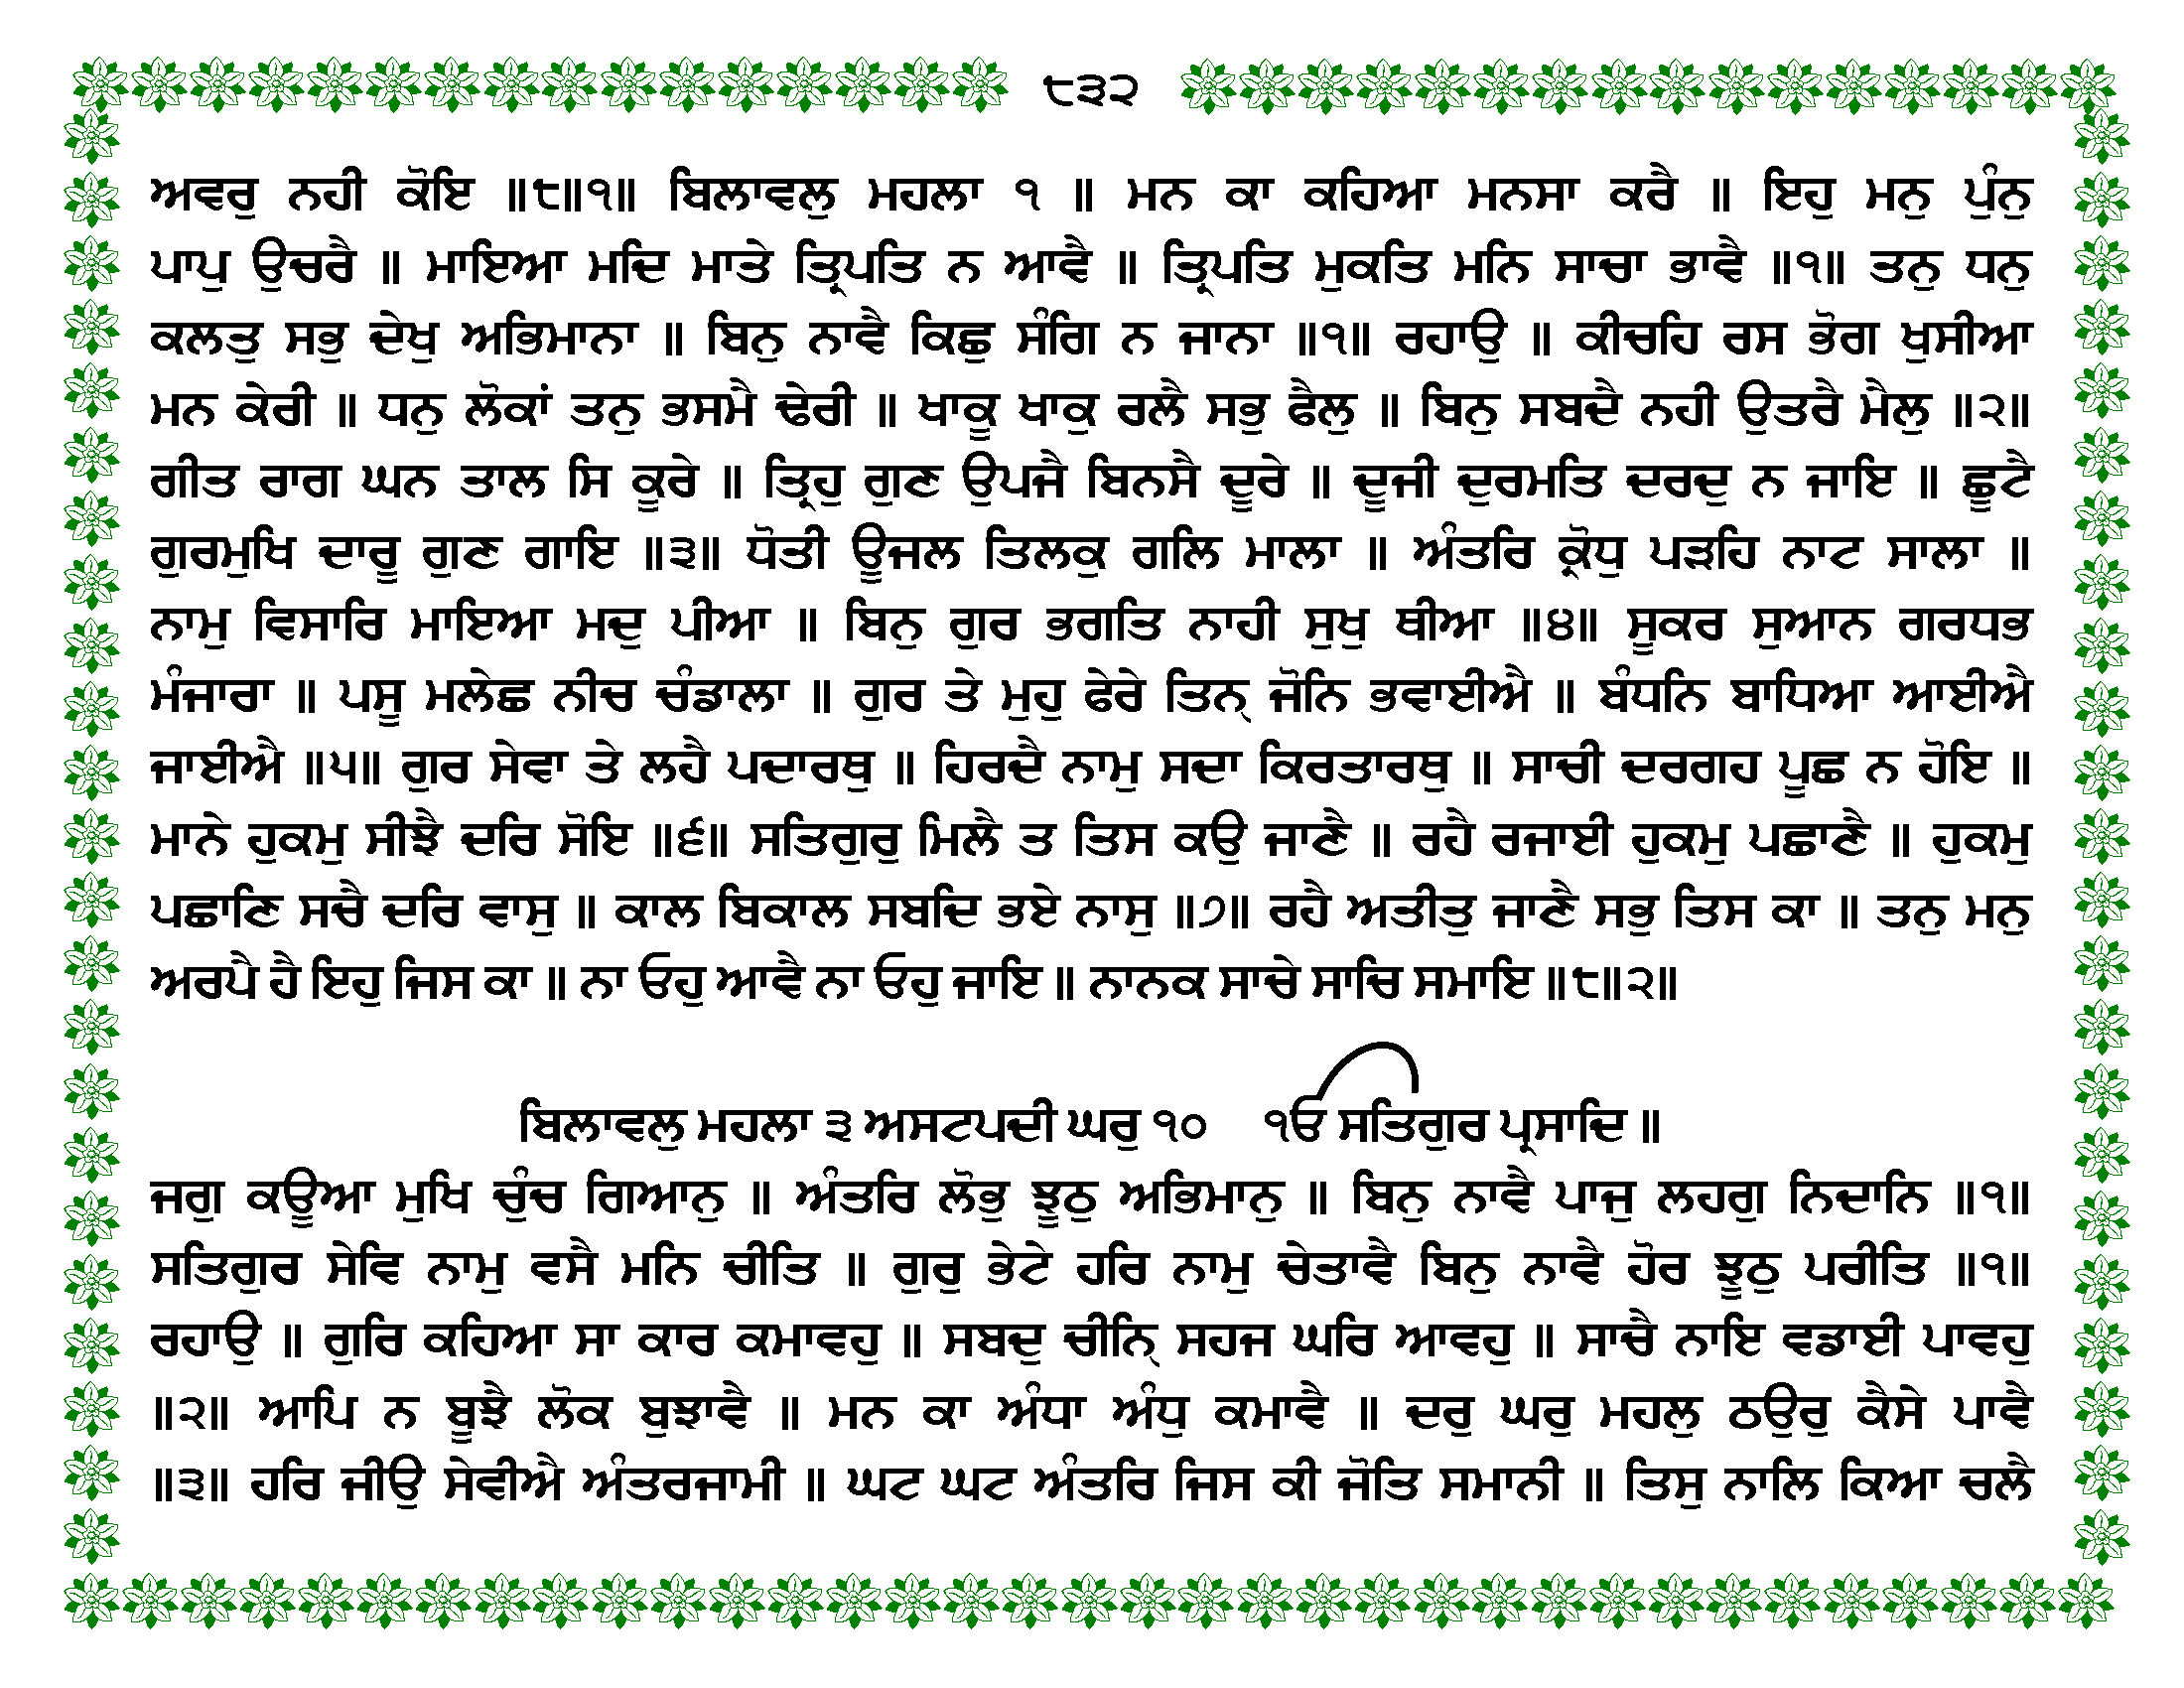 ੮੩੨
ਅਵਰੁ ਨਹੀ ਕੋਇ ॥੮॥੧॥ ਬਿਲਾਵਲੁ ਮਹਲਾ ੧ ॥ ਮਨ ਕਾ ਕਹਿਆ ਮਨਸਾ ਕਰੈ ॥ ਇਹੁ ਮਨੁ ਪੁੰਨੁ
ਪਾਪੁ ਉਚਰੈ ॥ ਮਾਇਆ ਮਦਿ ਮਾਤੇ ਤ੍ਰਿਪਤਿ ਨ ਆਵੈ ॥ ਤ੍ਰਿਪਤਿ ਮੁਕਤਿ ਮਨਿ ਸਾਚਾ ਭਾਵੈ ॥੧॥ ਤਨੁ ਧਨੁ
ਕਲਤੁ ਸਭੁ ਦੇਖੁ ਅਭਿਮਾਨਾ ॥ ਬਿਨੁ ਨਾਵੈ ਕਿਛੁ ਸੰਗਿ ਨ ਜਾਨਾ ॥੧॥ ਰਹਾਉ ॥ ਕੀਚਹਿ ਰਸ ਭੋਗ ਖੁਸੀਆ
ਮਨ ਕੇਰੀ ॥ ਧਨੁ ਲੋਕਾਂ ਤਨੁ ਭਸਮੈ ਢੇਰੀ ॥ ਖਾਕੂ ਖਾਕੁ ਰਲੈ ਸਭੁ ਫੈਲੁ ॥ ਬਿਨੁ ਸਬਦੈ ਨਹੀ ਉਤਰੈ ਮੈਲੁ ॥੨॥
ਗੀਤ ਰਾਗ ਘਨ ਤਾਲ ਸਿ ਕੂਰੇ ॥ ਤ੍ਰਿਹੁ ਗੁਣ ਉਪਜੈ ਬਿਨਸੈ ਦੂਰੇ ॥ ਦੂਜੀ ਦੁਰਮਤਿ ਦਰਦੁ ਨ ਜਾਇ ॥ ਛੂਟੈ
ਗੁਰਮੁਖਿ ਦਾਰੂ ਗੁਣ ਗਾਇ ॥੩॥ ਧੋਤੀ ਊਜਲ ਤਿਲਕੁ ਗਲਿ ਮਾਲਾ ॥ ਅੰਤਰਿ ਕ੍ਰੋਧੁ ਪੜਹਿ ਨਾਟ ਸਾਲਾ ॥
ਨਾਮੁ ਵਿਸਾਰਿ ਮਾਇਆ ਮਦੁ ਪੀਆ ॥ ਬਿਨੁ ਗੁਰ ਭਗਤਿ ਨਾਹੀ ਸੁਖੁ ਥੀਆ ॥੪॥ ਸੂਕਰ ਸੁਆਨ ਗਰਧਭ
ਮੰਜਾਰਾ ॥ ਪਸੂ ਮਲੇਛ ਨੀਚ ਚੰਡਾਲਾ ॥ ਗੁਰ ਤੇ ਮੁਹੁ ਫੇਰੇ ਤਿਨ੍ ਜੋਨਿ ਭਵਾਈਐ ॥ ਬੰਧਨਿ ਬਾਧਿਆ ਆਈਐ
ਜਾਈਐ ॥੫॥ ਗੁਰ ਸੇਵਾ ਤੇ ਲਹੈ ਪਦਾਰਥੁ ॥ ਹਿਰਦੈ ਨਾਮੁ ਸਦਾ ਕਿਰਤਾਰਥੁ ॥ ਸਾਚੀ ਦਰਗਹ ਪੂਛ ਨ ਹੋਇ ॥
ਮਾਨੇ ਹੁਕਮੁ ਸੀਝੈ ਦਰਿ ਸੋਇ ॥੬॥ ਸਤਿਗੁਰੁ ਮਿਲੈ ਤ ਤਿਸ ਕਉ ਜਾਣੈ ॥ ਰਹੈ ਰਜਾਈ ਹੁਕਮੁ ਪਛਾਣੈ ॥ ਹੁਕਮੁ
ਪਛਾਣਿ ਸਚੈ ਦਰਿ ਵਾਸੁ ॥ ਕਾਲ ਬਿਕਾਲ ਸਬਦਿ ਭਏ ਨਾਸੁ ॥੭॥ ਰਹੈ ਅਤੀਤੁ ਜਾਣੈ ਸਭੁ ਤਿਸ ਕਾ ॥ ਤਨੁ ਮਨੁ
ਅਰਪੈ ਹੈ ਇਹੁ ਜਿਸ ਕਾ ॥ ਨਾ ਓਹੁ ਆਵੈ ਨਾ ਓਹੁ ਜਾਇ ॥ ਨਾਨਕ ਸਾਚੇ ਸਾਚਿ ਸਮਾਇ ॥੮॥੨॥
ਬਿਲਾਵਲੁ ਮਹਲਾ ੩ ਅਸਟਪਦੀ ਘਰੁ ੧੦ ੴ ਸਤਿਗੁਰ ਪ੍ਰਸਾਦਿ ॥
ਜਗੁ ਕਊਆ ਮੁਖਿ ਚੁੰਚ ਗਿਆਨੁ ॥ ਅੰਤਰਿ ਲੋਭੁ ਝੂਠੁ ਅਭਿਮਾਨੁ ॥ ਬਿਨੁ ਨਾਵੈ ਪਾਜੁ ਲਹਗੁ ਨਿਦਾਨਿ ॥੧॥
ਸਤਿਗੁਰ ਸੇਵਿ ਨਾਮੁ ਵਸੈ ਮਨਿ ਚੀਤਿ ॥ ਗੁਰੁ ਭੇਟੇ ਹਰਿ ਨਾਮੁ ਚੇਤਾਵੈ ਬਿਨੁ ਨਾਵੈ ਹੋਰ ਝੂਠੁ ਪਰੀਤਿ ॥੧॥
ਰਹਾਉ ॥ ਗੁਰਿ ਕਹਿਆ ਸਾ ਕਾਰ ਕਮਾਵਹੁ ॥ ਸਬਦੁ ਚੀਨ੍ਹਿ ਸਹਜ ਘਰਿ ਆਵਹੁ ॥ ਸਾਚੈ ਨਾਇ ਵਡਾਈ ਪਾਵਹੁ
॥੨॥ ਆਪਿ ਨ ਬੂਝੈ ਲੋਕ ਬੁਝਾਵੈ ॥ ਮਨ ਕਾ ਅੰਧਾ ਅੰਧੁ ਕਮਾਵੈ ॥ ਦਰੁ ਘਰੁ ਮਹਲੁ ਠਉਰੁ ਕੈਸੇ ਪਾਵੈ
॥੩॥ ਹਰਿ ਜੀਉ ਸੇਵੀਐ ਅੰਤਰਜਾਮੀ ॥ ਘਟ ਘਟ ਅੰਤਰਿ ਜਿਸ ਕੀ ਜੋਤਿ ਸਮਾਨੀ ॥ ਤਿਸੁ ਨਾਲਿ ਕਿਆ ਚਲੈ